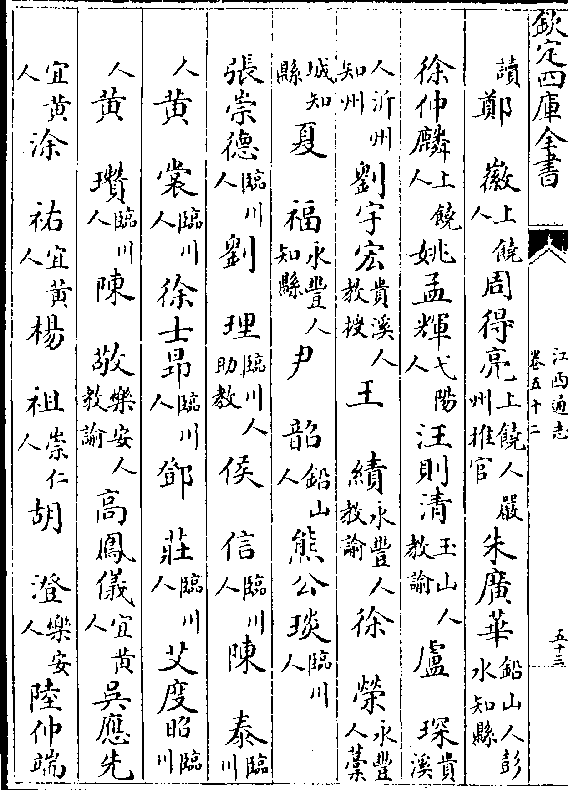 欽定四庫全書
江西通志
卷五十二
五十三
讀鄭徽上饒人周得亮上饒人嚴州推官朱廣華鉛山人彭水知縣
徐仲麟上饒人姚孟輝弋陽人汪則清玉山人教諭盧琛貴溪
人沂州知州劉宇宏貴溪人教授王績永豐人教諭徐榮永豐人藁
城知縣夏福永豐人知縣尹韶鉛山人熊公琰臨川人
張崇德臨川人劉理臨川人助教侯信臨川人陳泰臨川
人黄裳臨川人徐士昻臨川人鄧莊臨川人艾度昭臨川
人黄瓚臨川人陳敬樂安人教諭高鳳儀宜黄人吳應先
宜黄人涂祐宜黄人楊祖崇仁人胡澄樂安人陸仲端